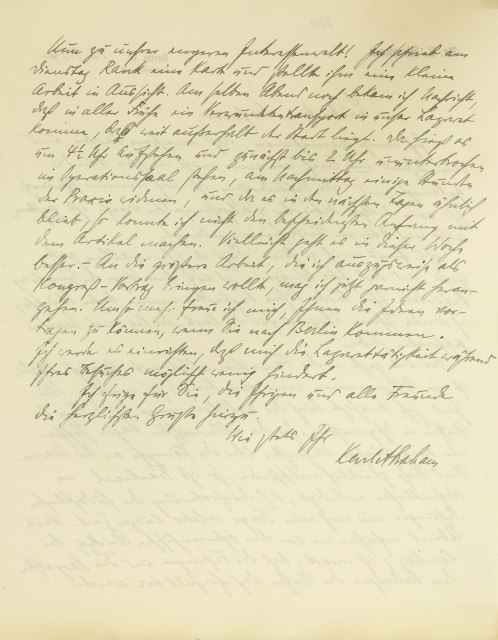 Nun zu unsrer engeren Interessenwelt! Ich schrieb am
Dienstag Rank eine Karte und stellte ihm eine kleine
Arbeit in Aussicht. Am selben Abend noch bekam ich Nachricht,
daß in aller Frühe ein Verwundetentransport in unser Lazaret
komme, das weit außerhalb der Stadt liegt. Da hieß es
um 4½ Uhr Aufstehen und zunächst bis 2 Uhr ununterbrochen
im Operationssaal stehen, am Nachmittag einige Stunden
der Praxis widmen, und da es in den nächsten Tagen ähnlich
blieb, so konnte ich nicht den bescheidensten Anfang mit
dem Artikel machen. Vielleicht geht es in dieser Woche
besser. – An die größere Arbeit, die ich auszugsweise als
Kongreß-Vortrag bringen wollte, mag ich jetzt garnicht heran-
gehen. Umso mehr freue ich mich, Ihnen die Ideen vor-
tragen zu können, wenn Sie nach Berlin kommen.
Ich werde es einrichten, daß mich die Lazarettätigkeit während
Ihres Besuches möglichst wenig hindert.
Ich füge für Sie, die Ihrigen und alle Freunde
die herzlichsten Grüße hinzu.
Wie stets Ihr
Karl Abraham